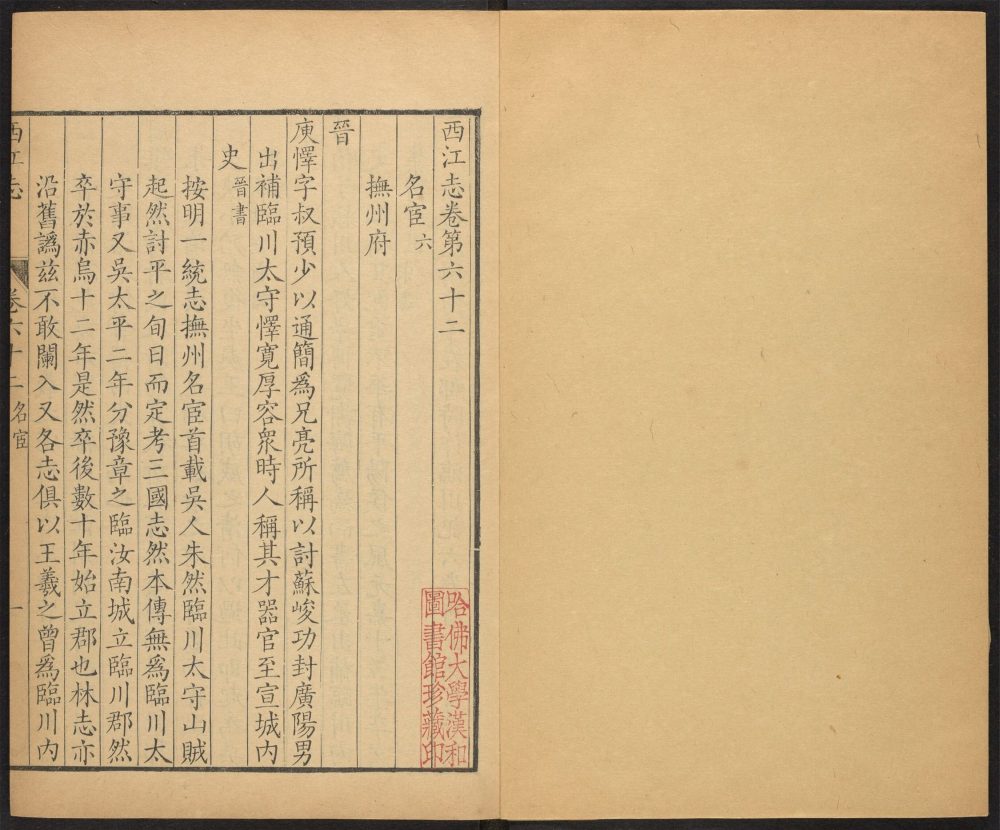 西江志卷第六十二
名宦六
撫州府
晉
庾懌字叔預少以通簡爲兄亮所稱以討蘇峻功封廣陽男
出補臨川太守懌寛厚容衆時人稱其才器官至宣城内
史晉書
按明一統志撫州名宦首載吳人朱然臨川太守山賊
起然討平之旬日而定考三國志然本傳無爲臨川太
守事又吳太平二年分豫章之臨汝南城立臨川郡然
卒於赤烏十二年是然卒後數十年始立郡也林志亦
沿舊譌兹不敢闌入又各志俱以王羲之曾爲臨川内
西江志
卷六十二名宦
一
哈佛大學漢和
圖書館珍藏印